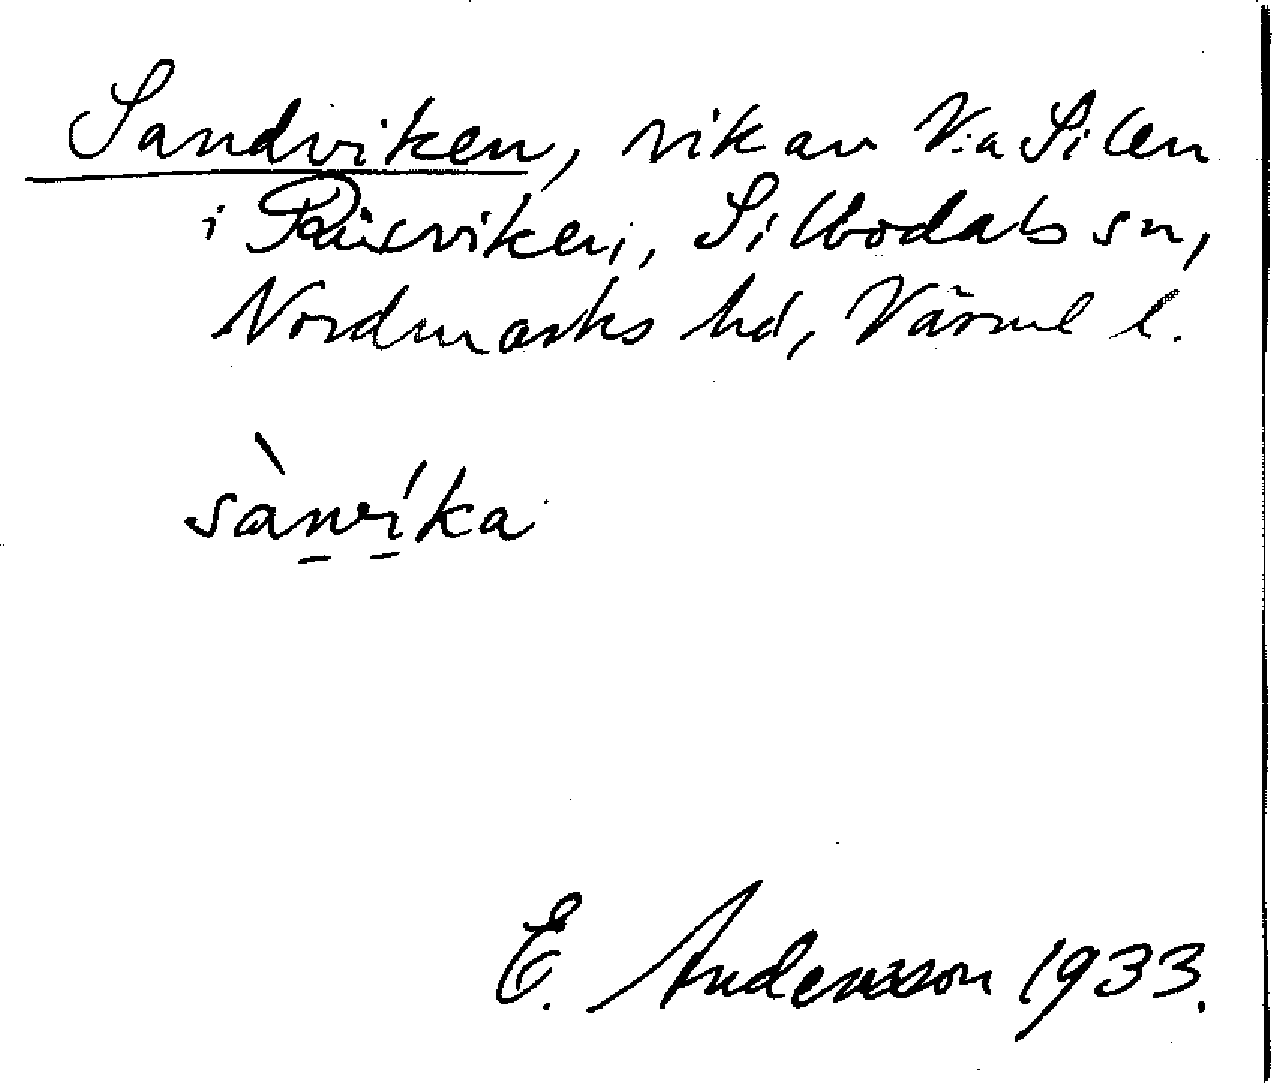 Sandviken, vik av V:a Silen
i Rävarviken, Silbodals sn,
Nordmarks hd, Värml l.
sànvíka
E. Andersson 1933.